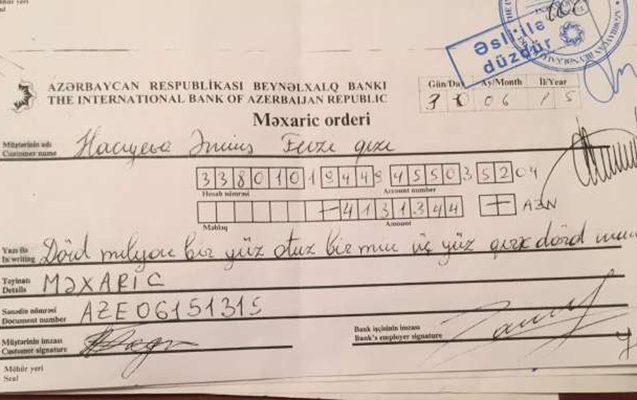 Möhür yeri
Seal
Əsli ilə
düzdür
AZƏRBAYCAN RESPUBLİKASI BEYNƏLXALQ BANKI
THE INTERNATIONAL BANK OF AZERBAIJAN REPUBLIC
Gün/Day Ay/Month İl/Year
06 15
Məxaric orderi
Müştərinin adı
Customer name
qızı
33801019449455035204
Hesab nömrəsi Account number
4131344 AZN
Məbləğ Amount
Yazı ilə
In writing
Dörd milyon bir yüz otuz bir min üç yüz qırx dörd man
Təyinatı
Details
MƏXARIC
Sənədin nömrəsi
Document number
AZE06151315
Müştərinin imzası
Customer signature
Bank işçisinin imzası
Bank's employer signature
Möhür yeri
Seal